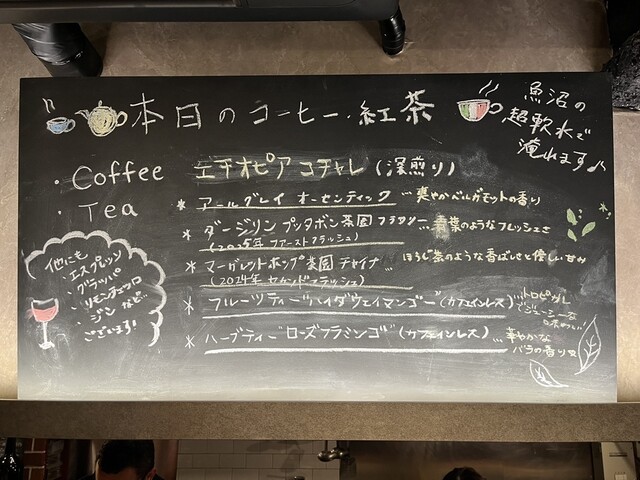 本日のコーヒー・紅茶
魚沼の
超軟水で
淹れます♪
・Coffee
エチオピア コチャレ (深煎り)
・Tea
* アールグレイ オーセンティック …爽やかベルガモットの香り
* ダージリン プッタボン茶園 フラワリー …若葉のようなフレッシュさ
(2025年 ファーストフラッシュ)
* マーガレットホープ茶園 チャイナ …ほうじ茶のような香ばしさと優しい甘み
(2024年 セカンドフラッシュ)
* フルーツティー"ハイダウェイマンゴー"(カフェインレス) …トロピカル
でジューシーな
* ハーブティー"ローズフラミンゴ"(カフェインレス) …華やかな
バラの香り
他にも
・エスプレッソ
・グラッパ
・リモンチェッロ
・ジン など…
ございます!